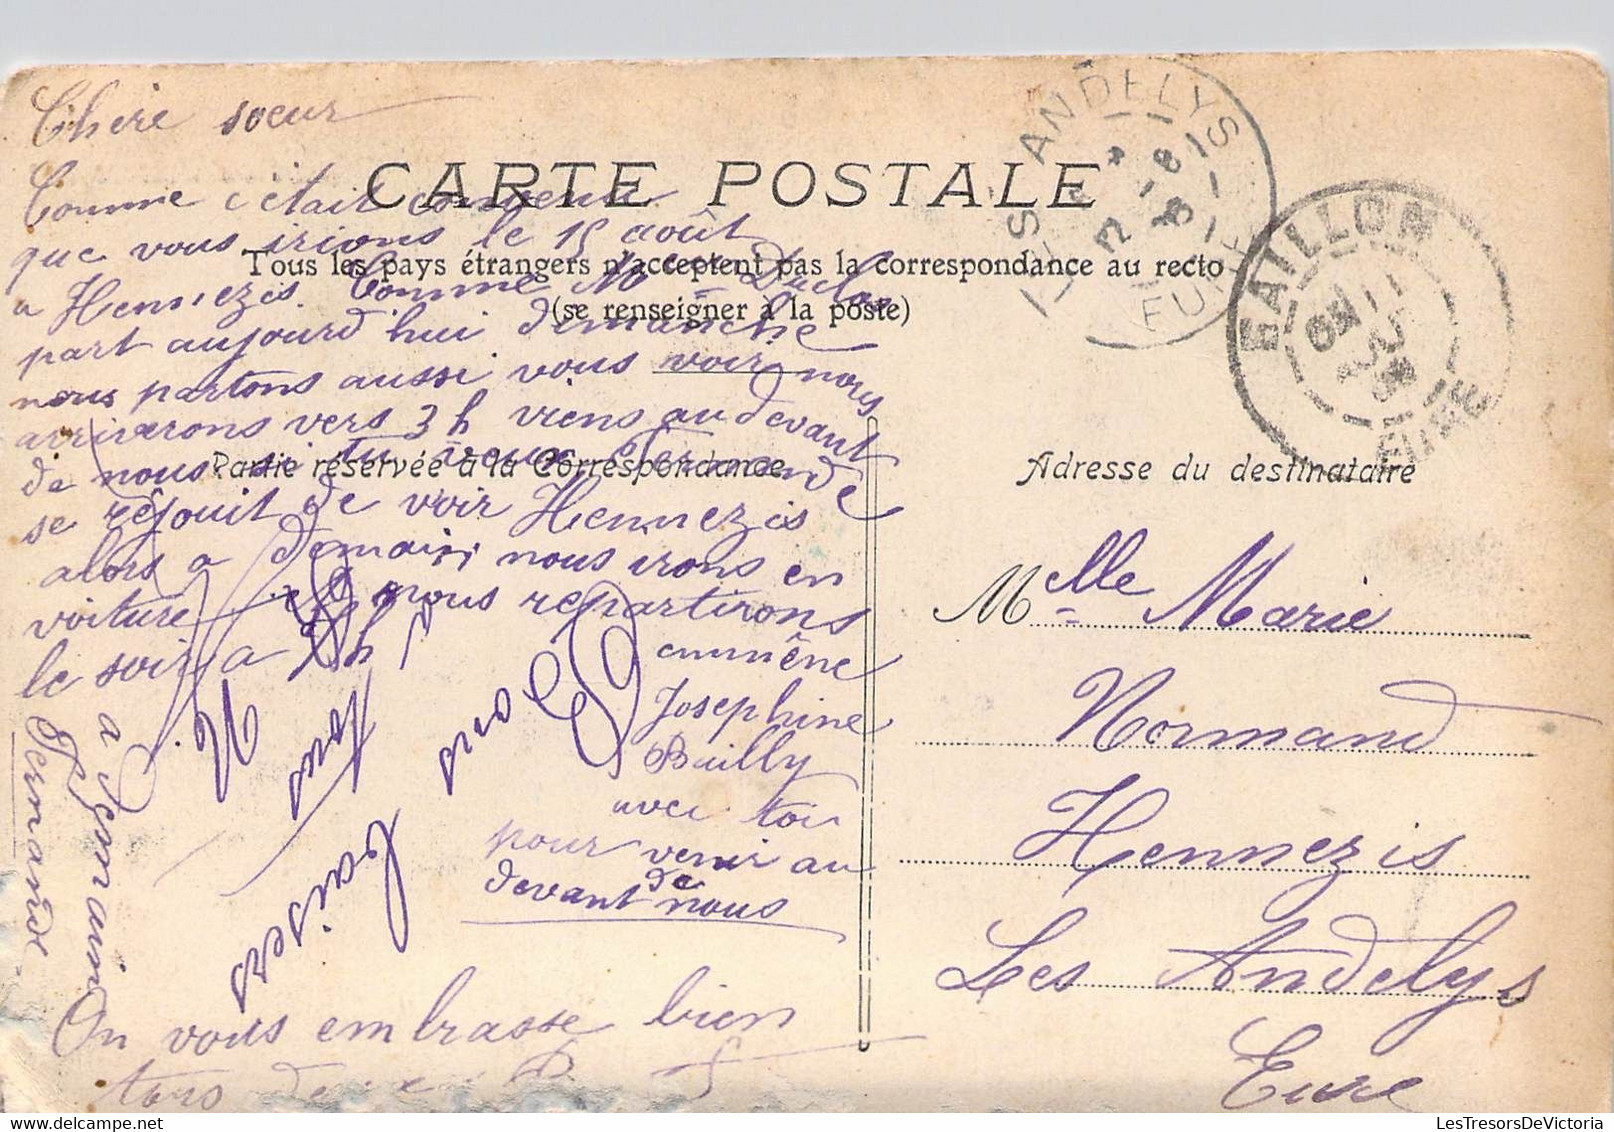 Chère soeur
CARTE POSTALE
Comme c'était convenu
que vous irions le 15 août
Tous les pays étrangers n'acceptent pas la correspondance au recto
a Hennezis. Comme Mme Duclos
(se renseigner à la poste)
part aujourd'hui dimanche
nous partons aussi vous voir nous
arriverons vers 3 h viens au devant
de nous si tu veux Fernande
Partie réservée à la Correspondance
se réjouit de voir Hennezis
alors a demain nous irons en
voiture et nous repartirons
le soir a h
emmène
Josephine
Bailly
avec toi
pour venir au
devant de nous
a demain
Fernande
Bons baisers
a tous
On vous embrasse bien
tous
Adresse du destinataire
Mlle Marie
Normand
Hennezis
Les Andelys
Eure
LES ANDELYS
EURE
GAILLON
EURE
LesTresorsDeVictoria